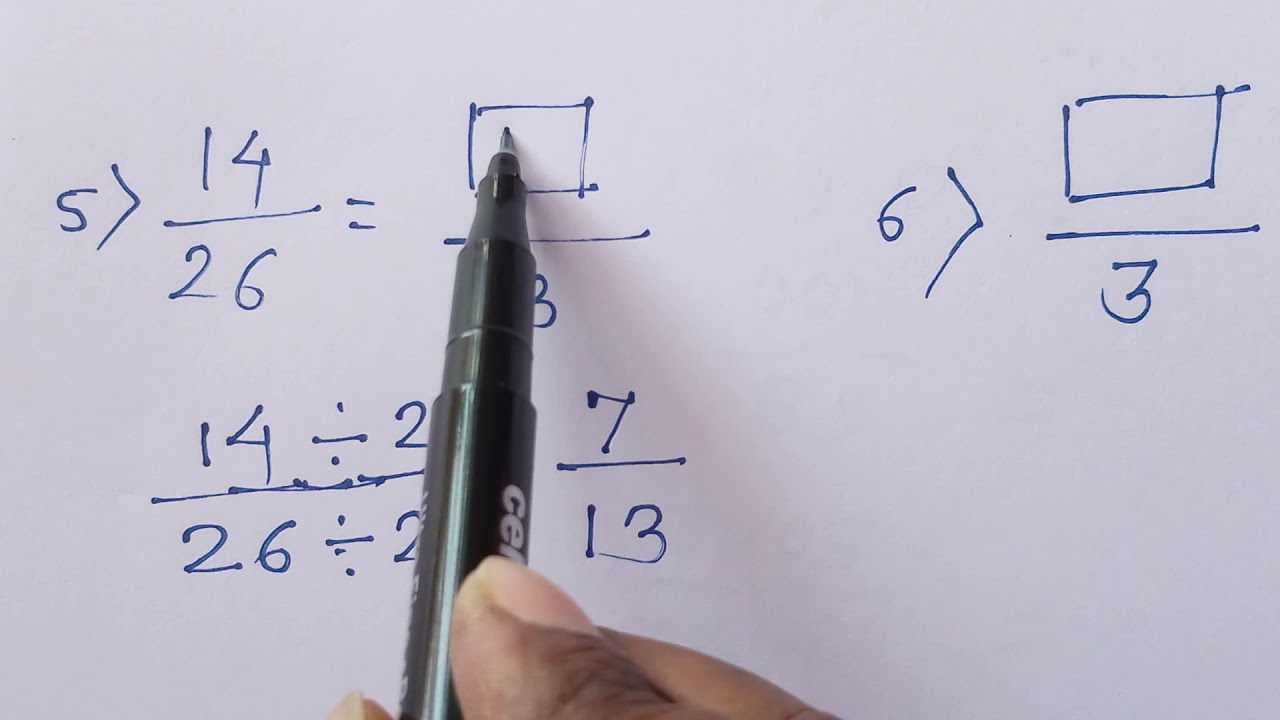 5) 14/26 = □/3
6) □/3
14 ÷ 2 / 26 ÷ 2
7/13